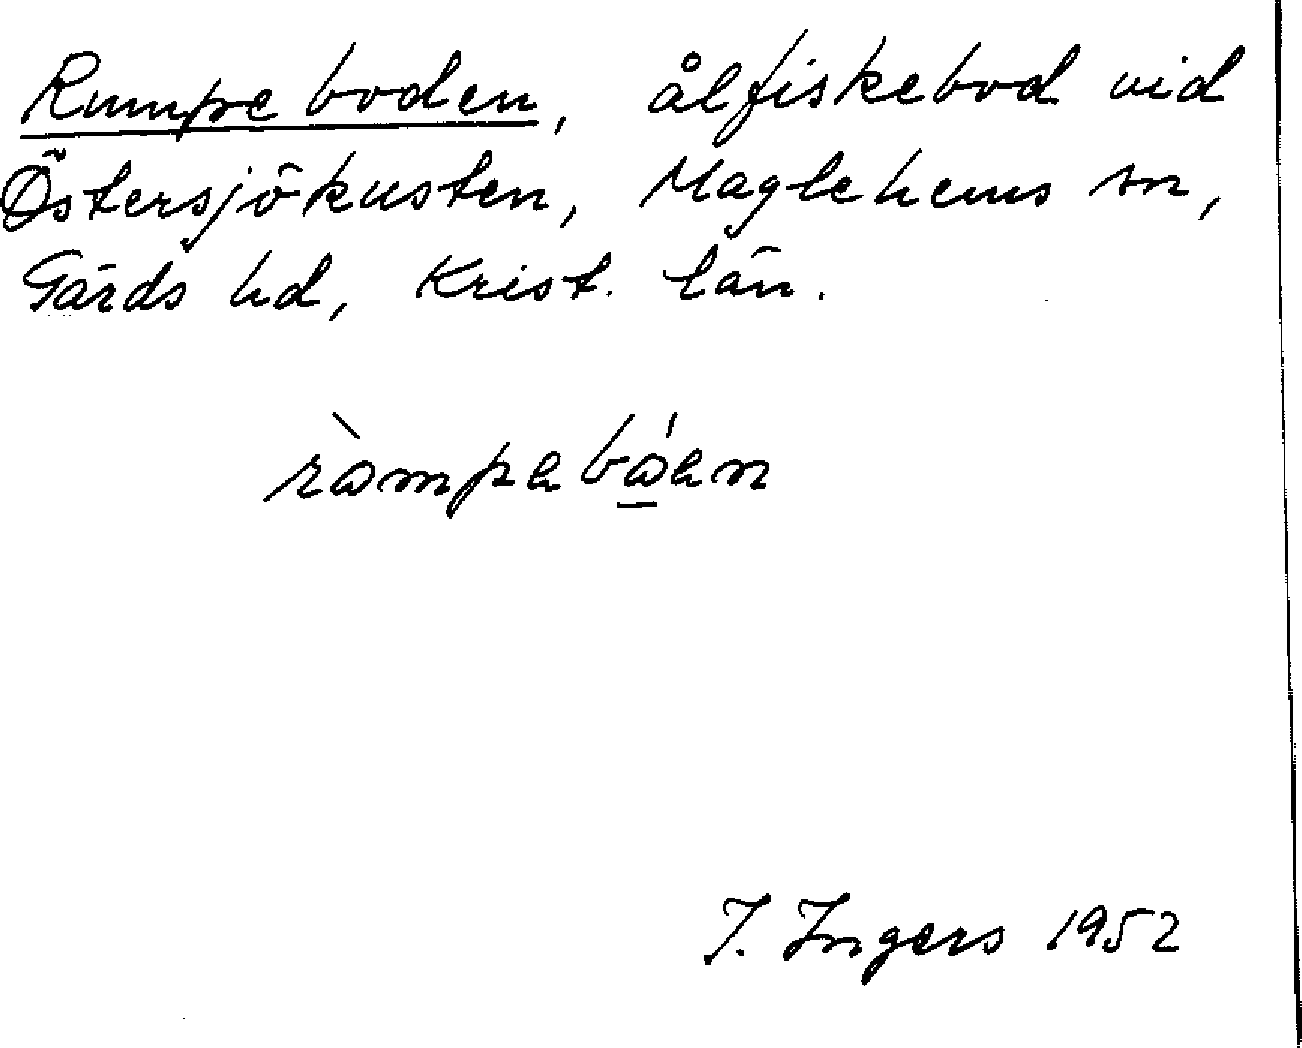 Rumpeboden, ålfiskebod vid
Östersjökusten, Maglehems sn,
Gärds hd, Krist. län.
I. Ingers 1952